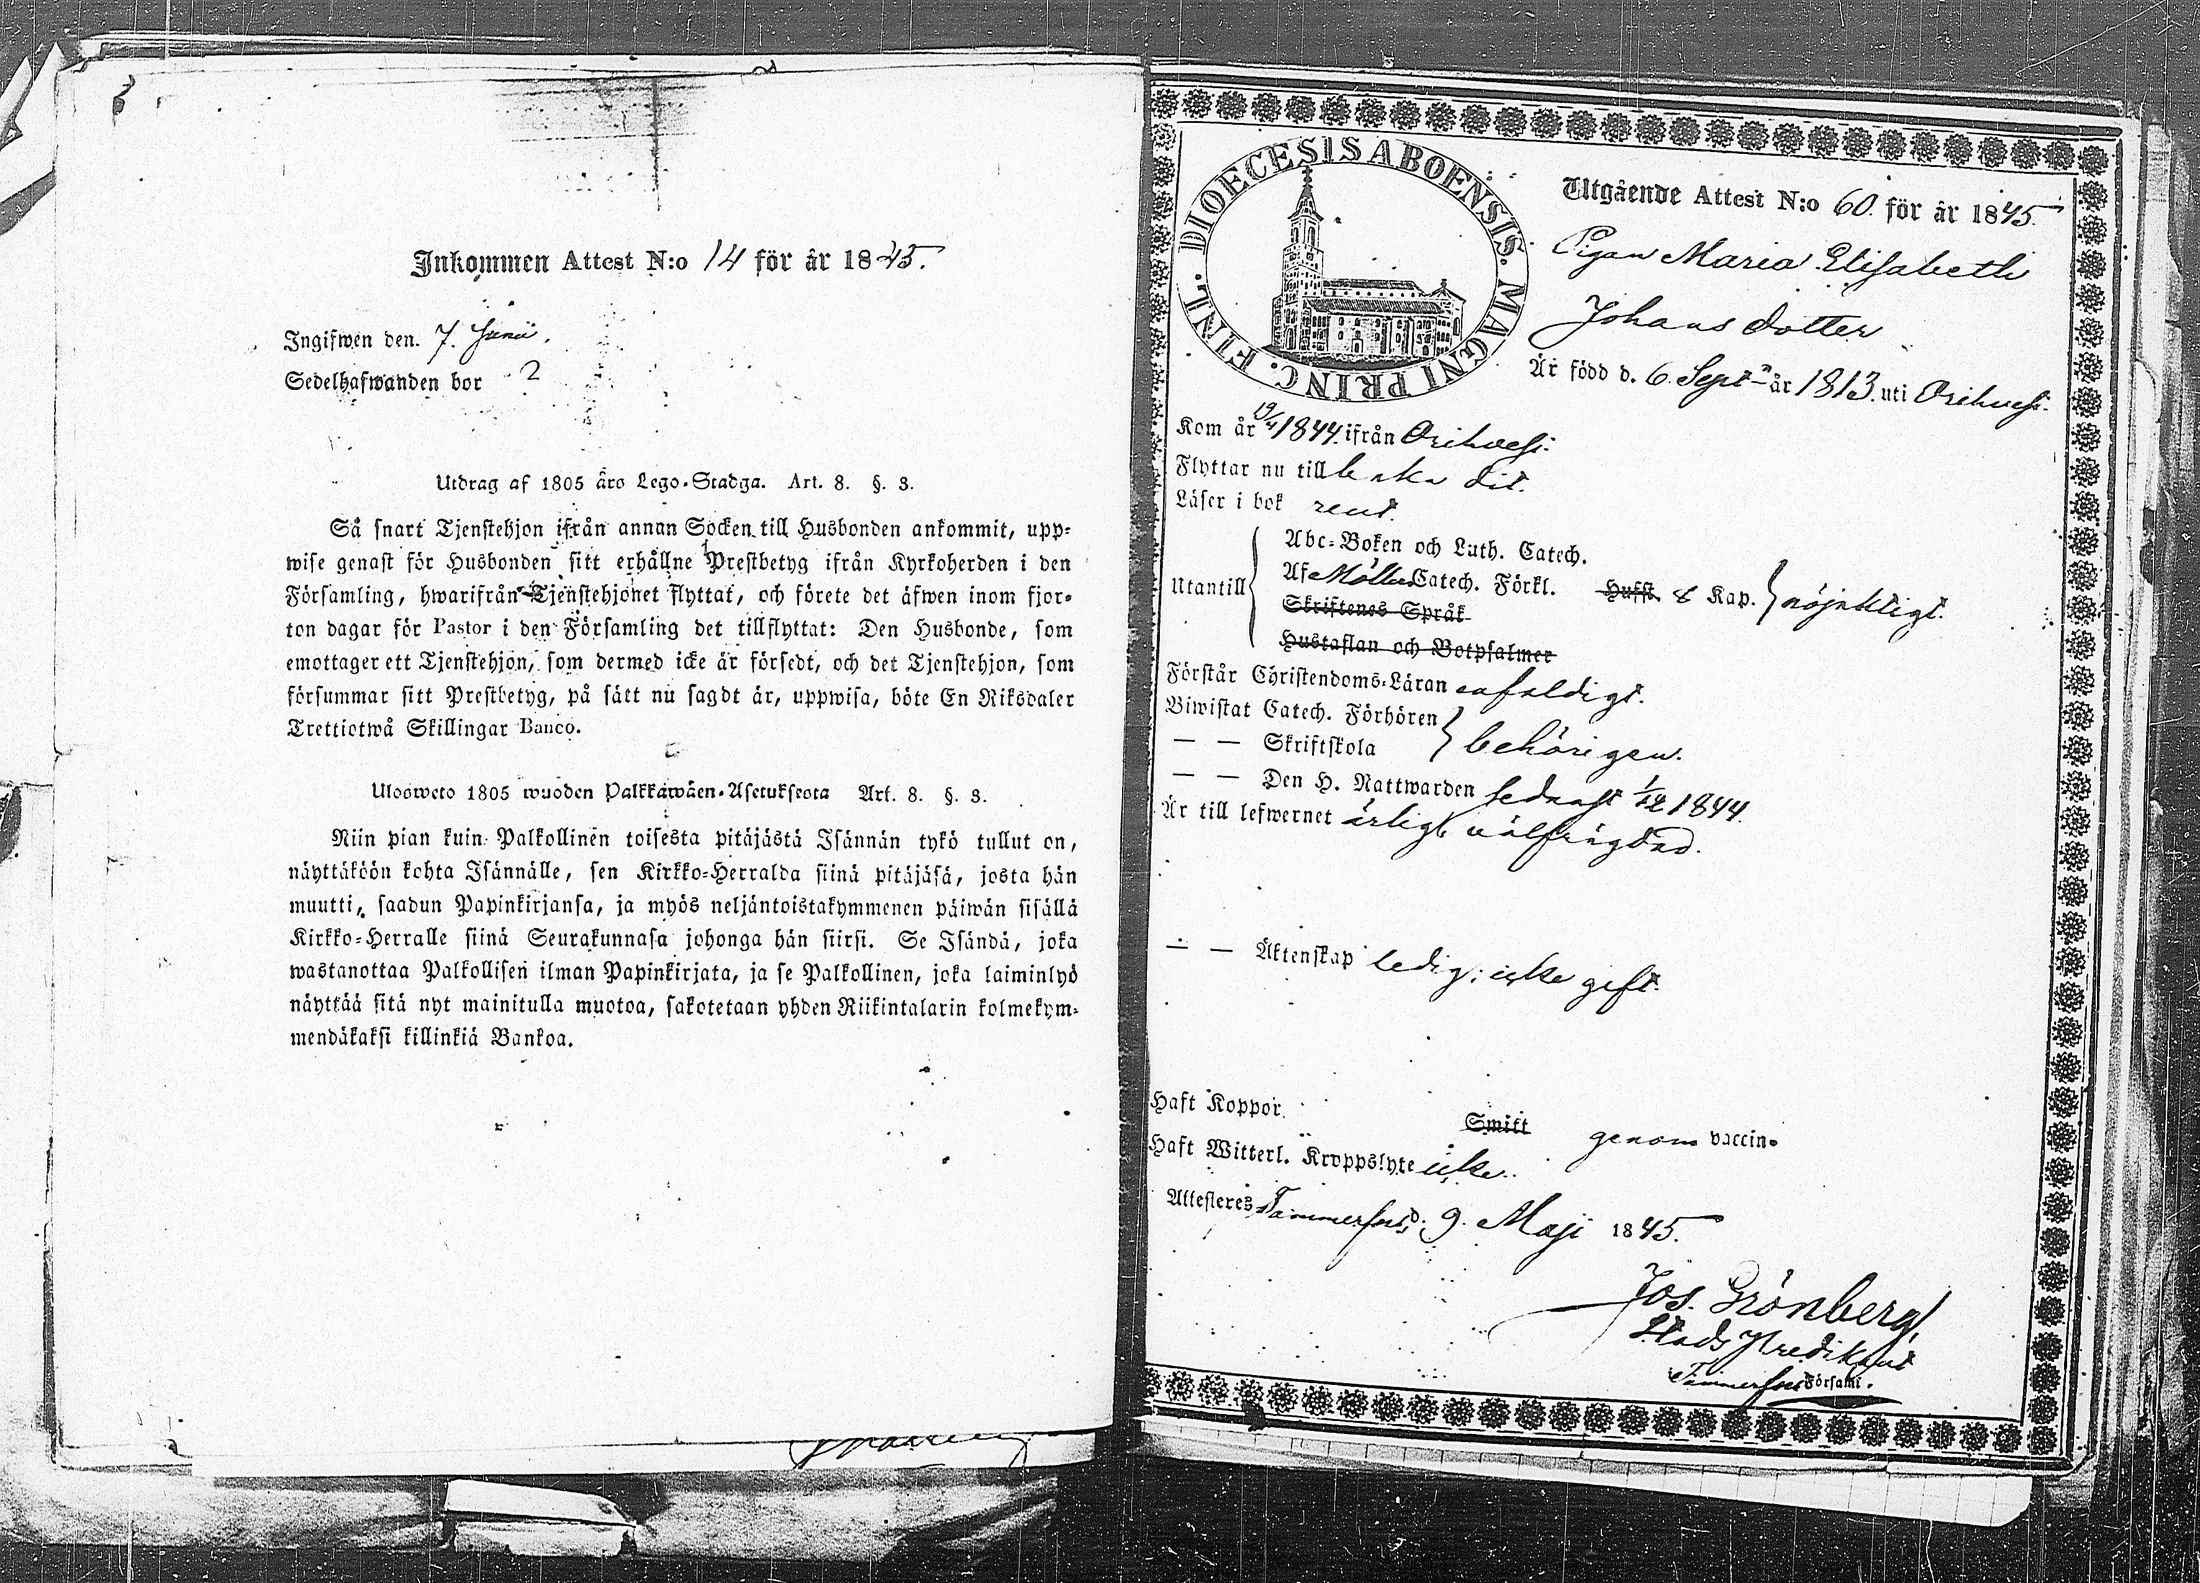 Inkommen Attest N:o 14 för år 1845.
Ingifwen den. 7. Junii.
Sedelhafwanden bor 2
Utdrag af 1805 års Lego-Stadga. Art. 8. §. 3.
Så snart Tjenstehjon ifrån annan Socken till Husbonden ankommit, upp-
wise genast för Husbonden sitt erhållne Prestbetyg ifrån Kyrkoherden i den
Församling, hwarifrån Tjenstehjonet flyttat, och förete det äfwen inom fjor-
ton dagar för Pastor i den Församling det tillflyttat: Den Husbonde, som
emottager ett Tjenstehjon, som dermed icke är försedt, och det Tjenstehjon, som
försummar sitt Prestbetyg, på sätt nu sagdt är, uppwisa, böte En Riksdaler
Trettiotwå Skillingar Banco.
Ulosweto 1805 wuoden Palkkawäen-Asetuksesta Art. 8. §. 3.
Niin pian kuin Palkollinen toisesta pitäjästä Isännän tykö tullut on,
näyttäköön kohta Isännälle, sen Kirkko-Herralda siinä pitäjäsä, josta hän
muutti, saadun Papinkirjansa, ja myös neljäntoistakymmenen päiwän sisällä
Kirkko-Herralle siinä Seurakunnasa johonga hän siirsi. Se Isändä, joka
wastanottaa Palkollisen ilman Papinkirjata, ja se Palkollinen, joka laiminlyö
näyttää sitä nyt mainitulla muotoa, sakotetaan yhden Riikintalarin kolmekym-
mendäkaksi killinkiä Bankoa.
DIOECESIS ABOENSIS. MAGNI PRINC. FINL.
Utgående Attest N:o 60. för år 1845.
Pigan Maria Elisabeth
Johans dotter
Är född d. 6. Sept. år 1813. uti Orihvesi.
Kom år 19/4 1844. ifrån Orihvesi.
Flyttar nu till baka dit.
Läser i bok rent.
Utantill
Abc-Boken och Luth. Catech.
Af Möllers Catech. Förkl. Husft. 8 Kap. nöjaktigt.
Skriftenes Språk
Hustaflan och Botpsalmer
Förstår Christendoms-Läran enfaldigt.
Biwistat Catech. Förhören
— — Skriftskola behörigen.
— — Den H. Nattwarden sednast 1/12 1844.
Är till lefwernet ärlig välfrägdad.
— — Äktenskap ledig; icke gift.
Haft Koppor. Smitt genom vaccin.
Haft Witterl. Kroppslyte icke.
Attesteres Tammerfors d. 9. Maji 1845.
Jos. Grönberg,
Stads Predikant
Tammerfors Församl.